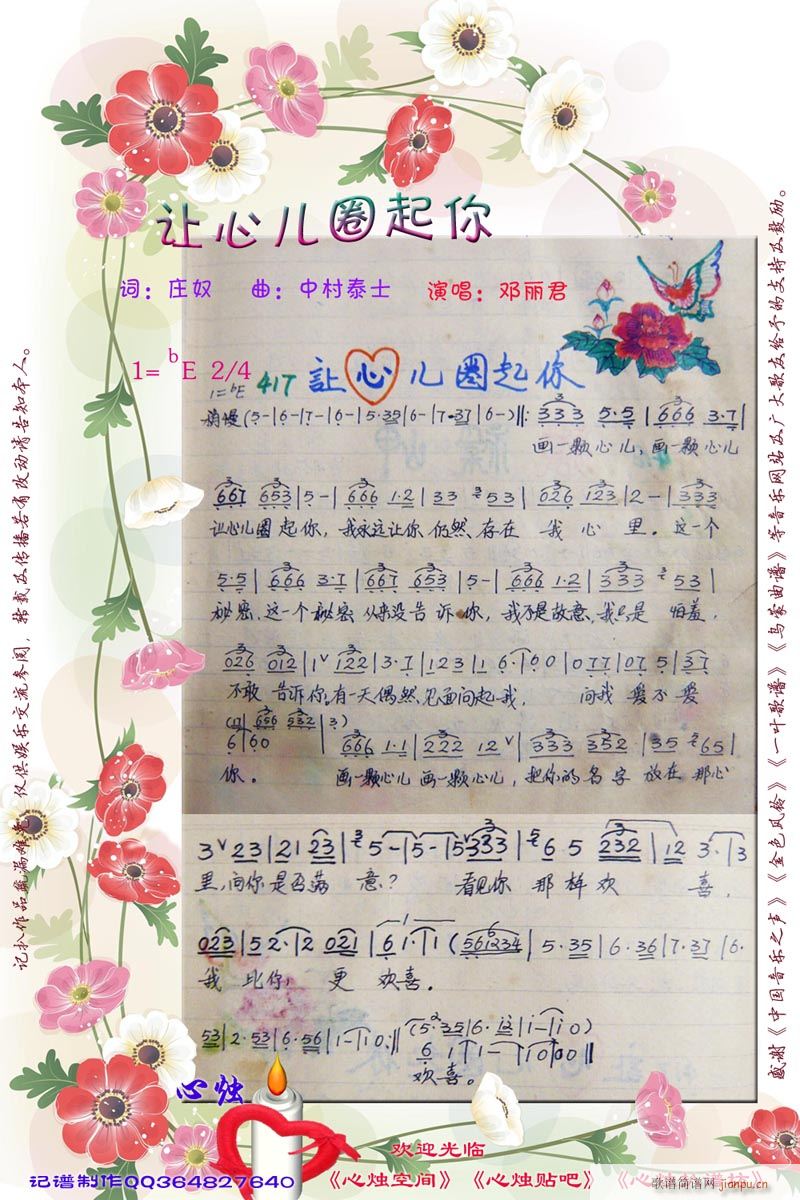 让心儿圈起你
词：庄奴 曲：中村泰士 演唱：邓丽君
1=bE 2/4
417 讓心儿圈起你
1=bE
稍慢(5-|6-|7-|6-|5·35|6-|7·37|6-)‖: 333 5·5|666 3·7|
画一颗心儿，画一颗心儿
667 653|5-|666 1·2|33 353|026 123|2-|333
让心儿圈起你，我永远让你仍然存在我心里。这一个
5·5|666 3·7|667 653|5-|666 1·2|333 353|
秘密，这一个秘密从来没告诉你，我不是故意，我只是怕羞，
026 012|1 122|3·7|123|1 6·|60|077|07 5|37
不敢告诉你。有一天偶然见面问起我，问我爱不爱
656 532|3)
6|60 666 1·1|222 12|333 352|35 265|
你。画一颗心儿画一颗心儿，把你的名字放在那心
3 23|21 23|35-|5-|5 333|56·5 232|12 3·|3
里，问你是否满意？看见你那样欢喜，
023|52·|2 021|61·|1 (561234|5·35|6·36|7·37|6·
我比你，更欢喜。
53|2·53|6·56|1-|10:‖ (5·35|6·|1-|10)
6 1|1-|10|00‖
欢喜。
心烛
欢迎光临
记谱制作QQ364827640
《心烛空间》《心烛贴吧》
歌谱简谱网
jianpu.cn
记扒作品纰漏难免，仅供娱乐交流参阅，转载及传播若有改动请告知本人。
感谢《中国音乐之声》《金色风铃》《一叶歌谱》《乌蒙曲谱》等音乐网站及广大歌友给予的支持及鼓励。